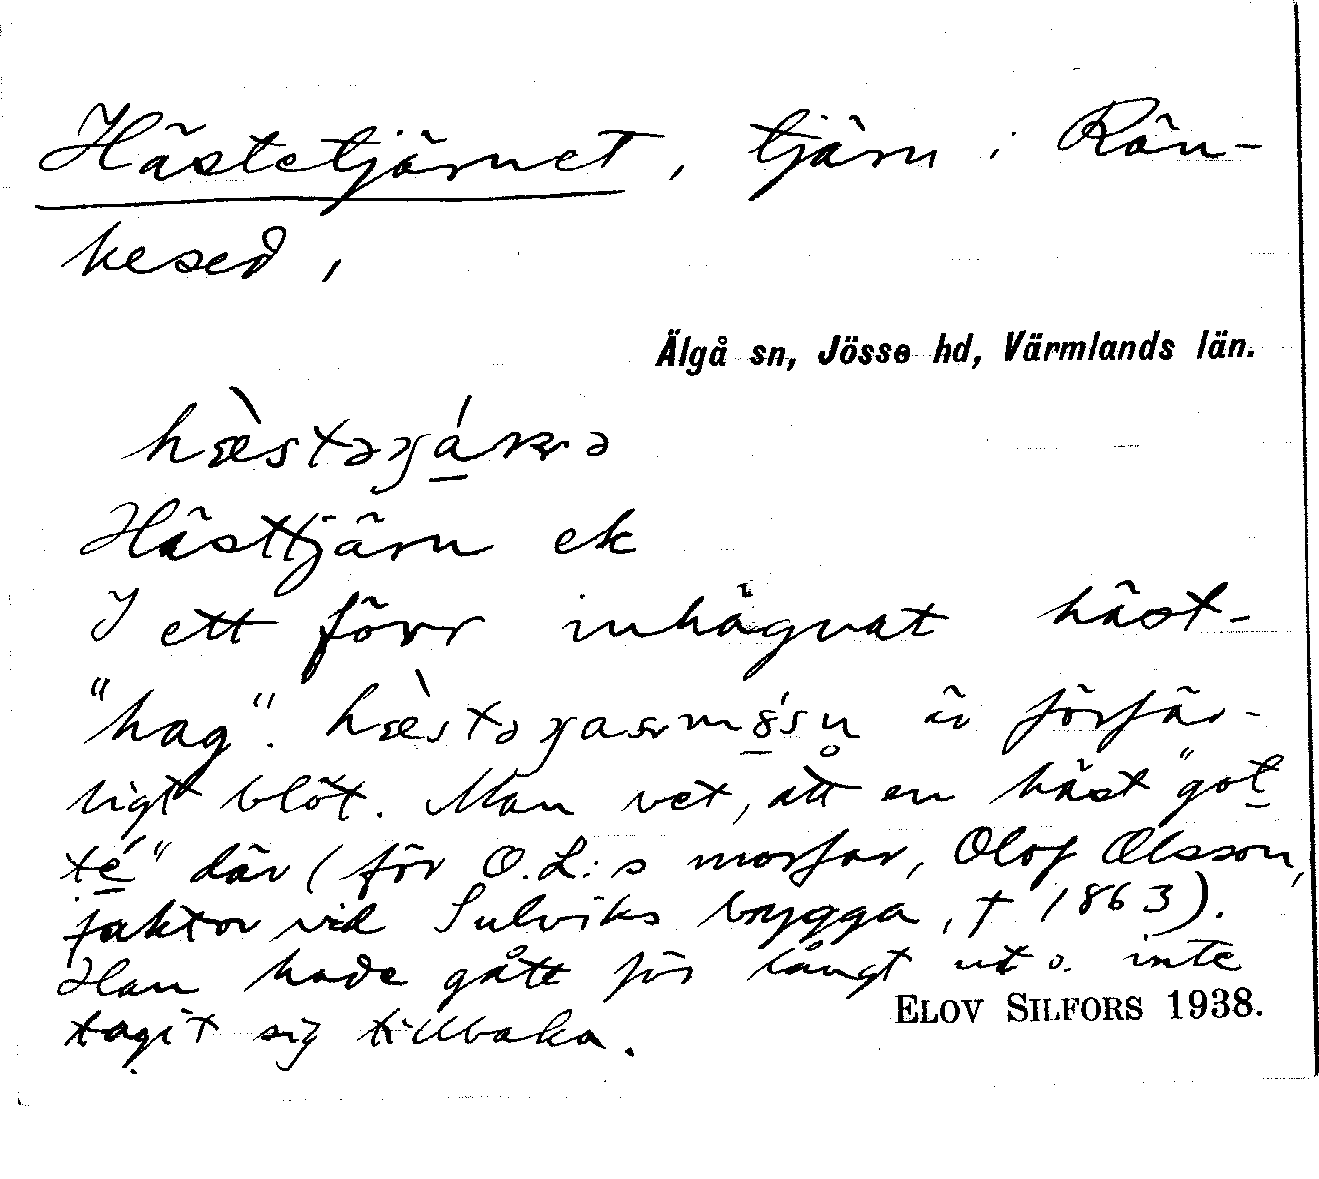 Hästetjärnet, tjärn i Rän-
kesed,
Älgå sn, Jösse hd, Värmlands län.
Hästtjärn ek
I ett förr inhägnat häst-
"hag". är förfär-
ligt blöt. Man vet, att en häst "got
té" där (för O.L:s morfar, Olof Olsson,
faktor vid Sulviks brygga, † 1863).
Han hade gått för långt ut o. inte
tagit sig tillbaka.
ELOV SILFORS 1938.